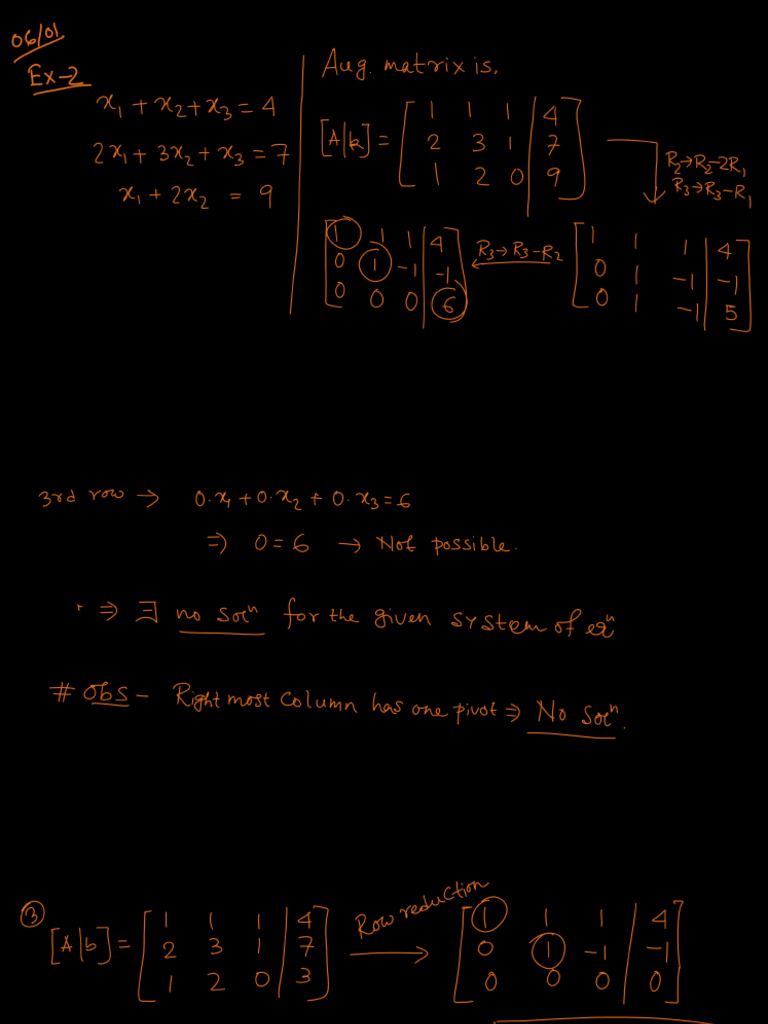 06/01
Ex-2
x₁ + x₂ + x₃ = 4
2x₁ + 3x₂ + x₃ = 7
x₁ + 2x₂ = 9
Aug. matrix is,
[A|b] = [ 1 1 1 | 4 ]
[ 2 3 1 | 7 ]
[ 1 2 0 | 9 ]
R₂→R₂-2R₁
R₃→R₃-R₁
[ 1 1 1 | 4 ]
[ 0 1 -1 | -1 ]
[ 0 1 -1 | 5 ]
R₃→R₃-R₂
[ 1 1 1 | 4 ]
[ 0 1 -1 | -1 ]
[ 0 0 0 | 6 ]
3rd row → 0·x₁ + 0·x₂ + 0·x₃ = 6
⇒ 0 = 6 → Not possible.
⇒ ∃ no solⁿ for the given system of eqⁿ
# Obs – Right most column has one pivot ⇒ No solⁿ.
③ [A|b] = [ 1 1 1 | 4 ]
[ 2 3 1 | 7 ]
[ 1 2 0 | 3 ]
Row reduction →
[ 1 1 1 | 4 ]
[ 0 1 -1 | -1 ]
[ 0 0 0 | 0 ]